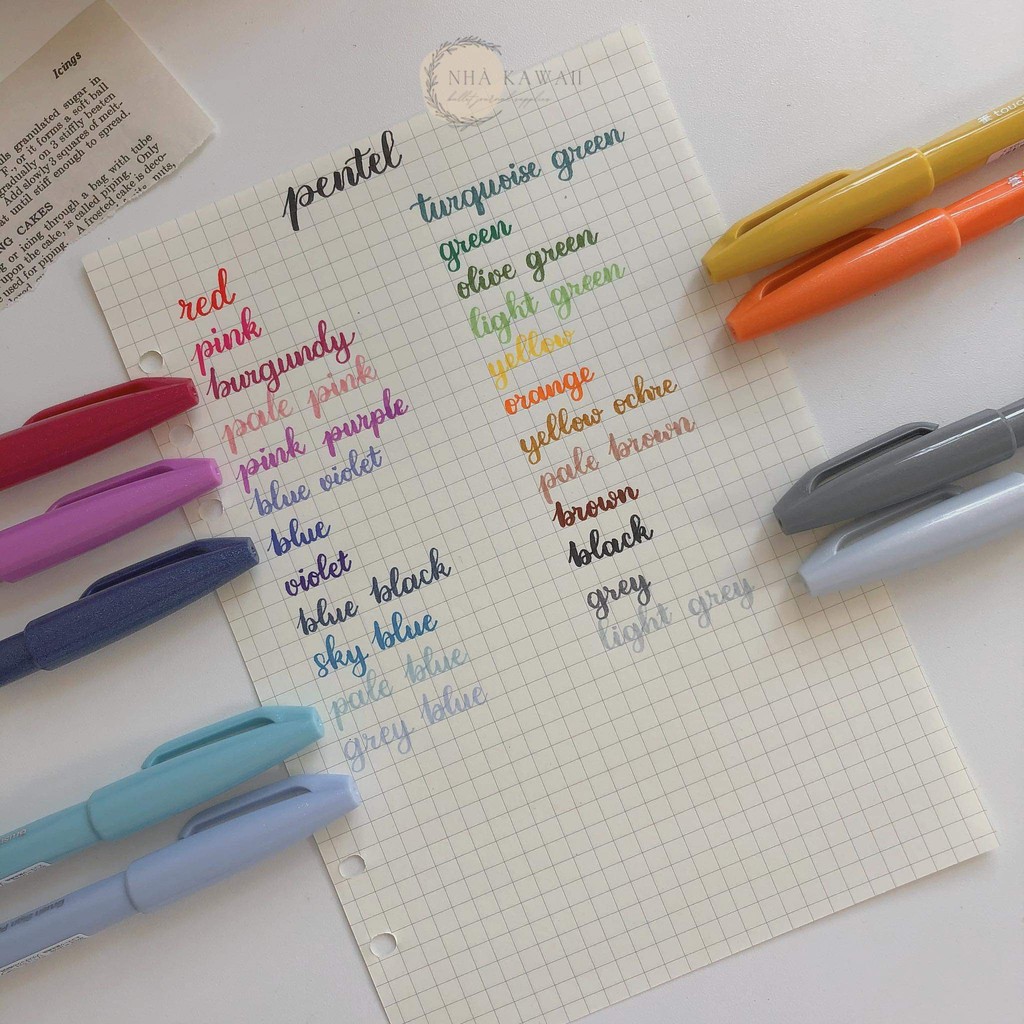 Icings
granulated sugar in
F., or it forms a soft ball
gradually on 3 stiffly beaten
Add slowly 3 squares of melt-
until stiff enough to spread.
CAKES
or icing through a bag with tube
upon the cake, is called piping. Only
used for piping. A frosted cake is deco-
nuts,
NHÀ KAWAII
bullet journal supplies
pentel
red
pink
burgundy
pale pink
pink purple
blue violet
blue
violet
blue black
sky blue
pale blue
grey blue
turquoise green
green
olive green
light green
yellow
orange
yellow ochre
pale brown
brown
black
grey
light grey
touch